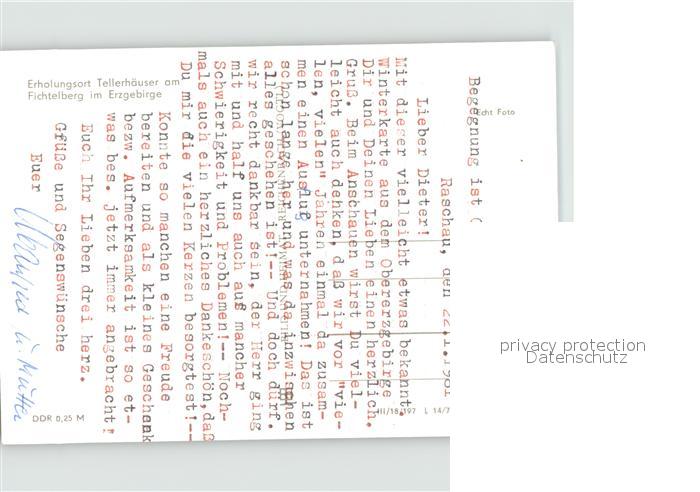 Erholungsort Tellerhäuser am
Fichtelberg im Erzgebirge
Echt Foto
Begegnung ist
Raschau, den 22.1.1981
Lieber Dieter!
Mit dieser vielleicht etwas bekannt.
Winterkarte aus dem Obererzgebirge
Dir und Deinen Lieben einen herzlich.
Gruß. Beim Anschauen wirst Du viel-
leicht auch denken, daß wir vor "vie-
len, vielen" Jahren einmal da zusam-
men einen Ausflug unternahmen! Das ist
schon lange her und was da inzwischen
alles geschehen ist!-- Und doch dürf.
wir recht dankbar sein, der Herr ging
mit und half uns auch auf mancher
Schwierigkeit und Problemen!-- Noch-
mals auch ein herzliches Dankeschön, daß
Du mir die vielen Kerzen besorgtest!--
Konnte so manchen eine Freude
bereiten und als kleines Geschenk
bezw. Aufmerksamkeit ist so et-
was bes. jetzt immer angebracht!
Euch Ihr Lieben drei herz.
Grüße und Segenswünsche
Euer
u. Mutter
DDR 0,25 M
III/18/197 L 14/7
privacy protection
Datenschutz